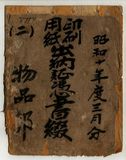 昭和十年度三月分
印刷
用紙
證憑書綴
(二)
物品部